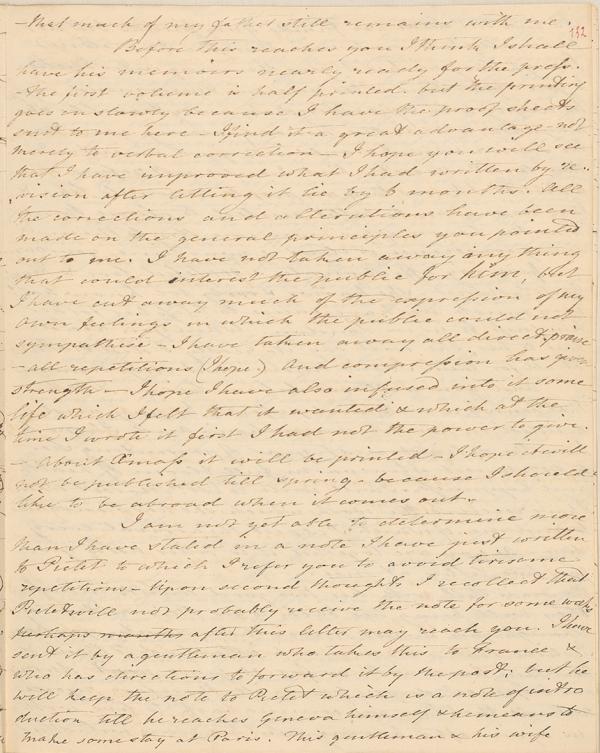 – that much of my father still remains with me.
152
Before this reaches you I think I shall
have his memoirs nearly ready for the press.
– the first volume is half printed but the printing
goes on slowly because I have the proof sheets
sent to me here – I find it a great advantage not
merely to verbal correction – I hope you will see
that I have improved what I had written by re-
vision after letting it lie by 6 months. All
the corrections and alterations have been
made on the general principles you pointed
out to me. I have not taken away anything
that could interest the public for him, but
I have cut away much of the expression of my
own feelings in which the public could not
sympathise – I have taken away all direct praise
– all repetitions (I hope) And compression has given
strength – I hope I have also infused into it some
life which I felt that it wanted & which at the
time I wrote it first I had not the power to give.
– About Xmass it will be printed – I hope it will
not be published till spring – because I should
like to be abroad when it comes out –
I am not yet able to determine more
than I have stated in a note I have just written
to Pictet to which I refer you to avoid tiresome
repetitions – Upon second thoughts I recollect that
Pictet will not probably receive the note for some weeks
perhaps months after this letter may reach you. I have
sent it by a gentleman who takes this to France &
who has directions to forward it by the post; but he
will keep the note to Pictet which is a note of intro
duction till he reaches Geneva himself & he means to
make some stay at Paris. This gentleman & his wife